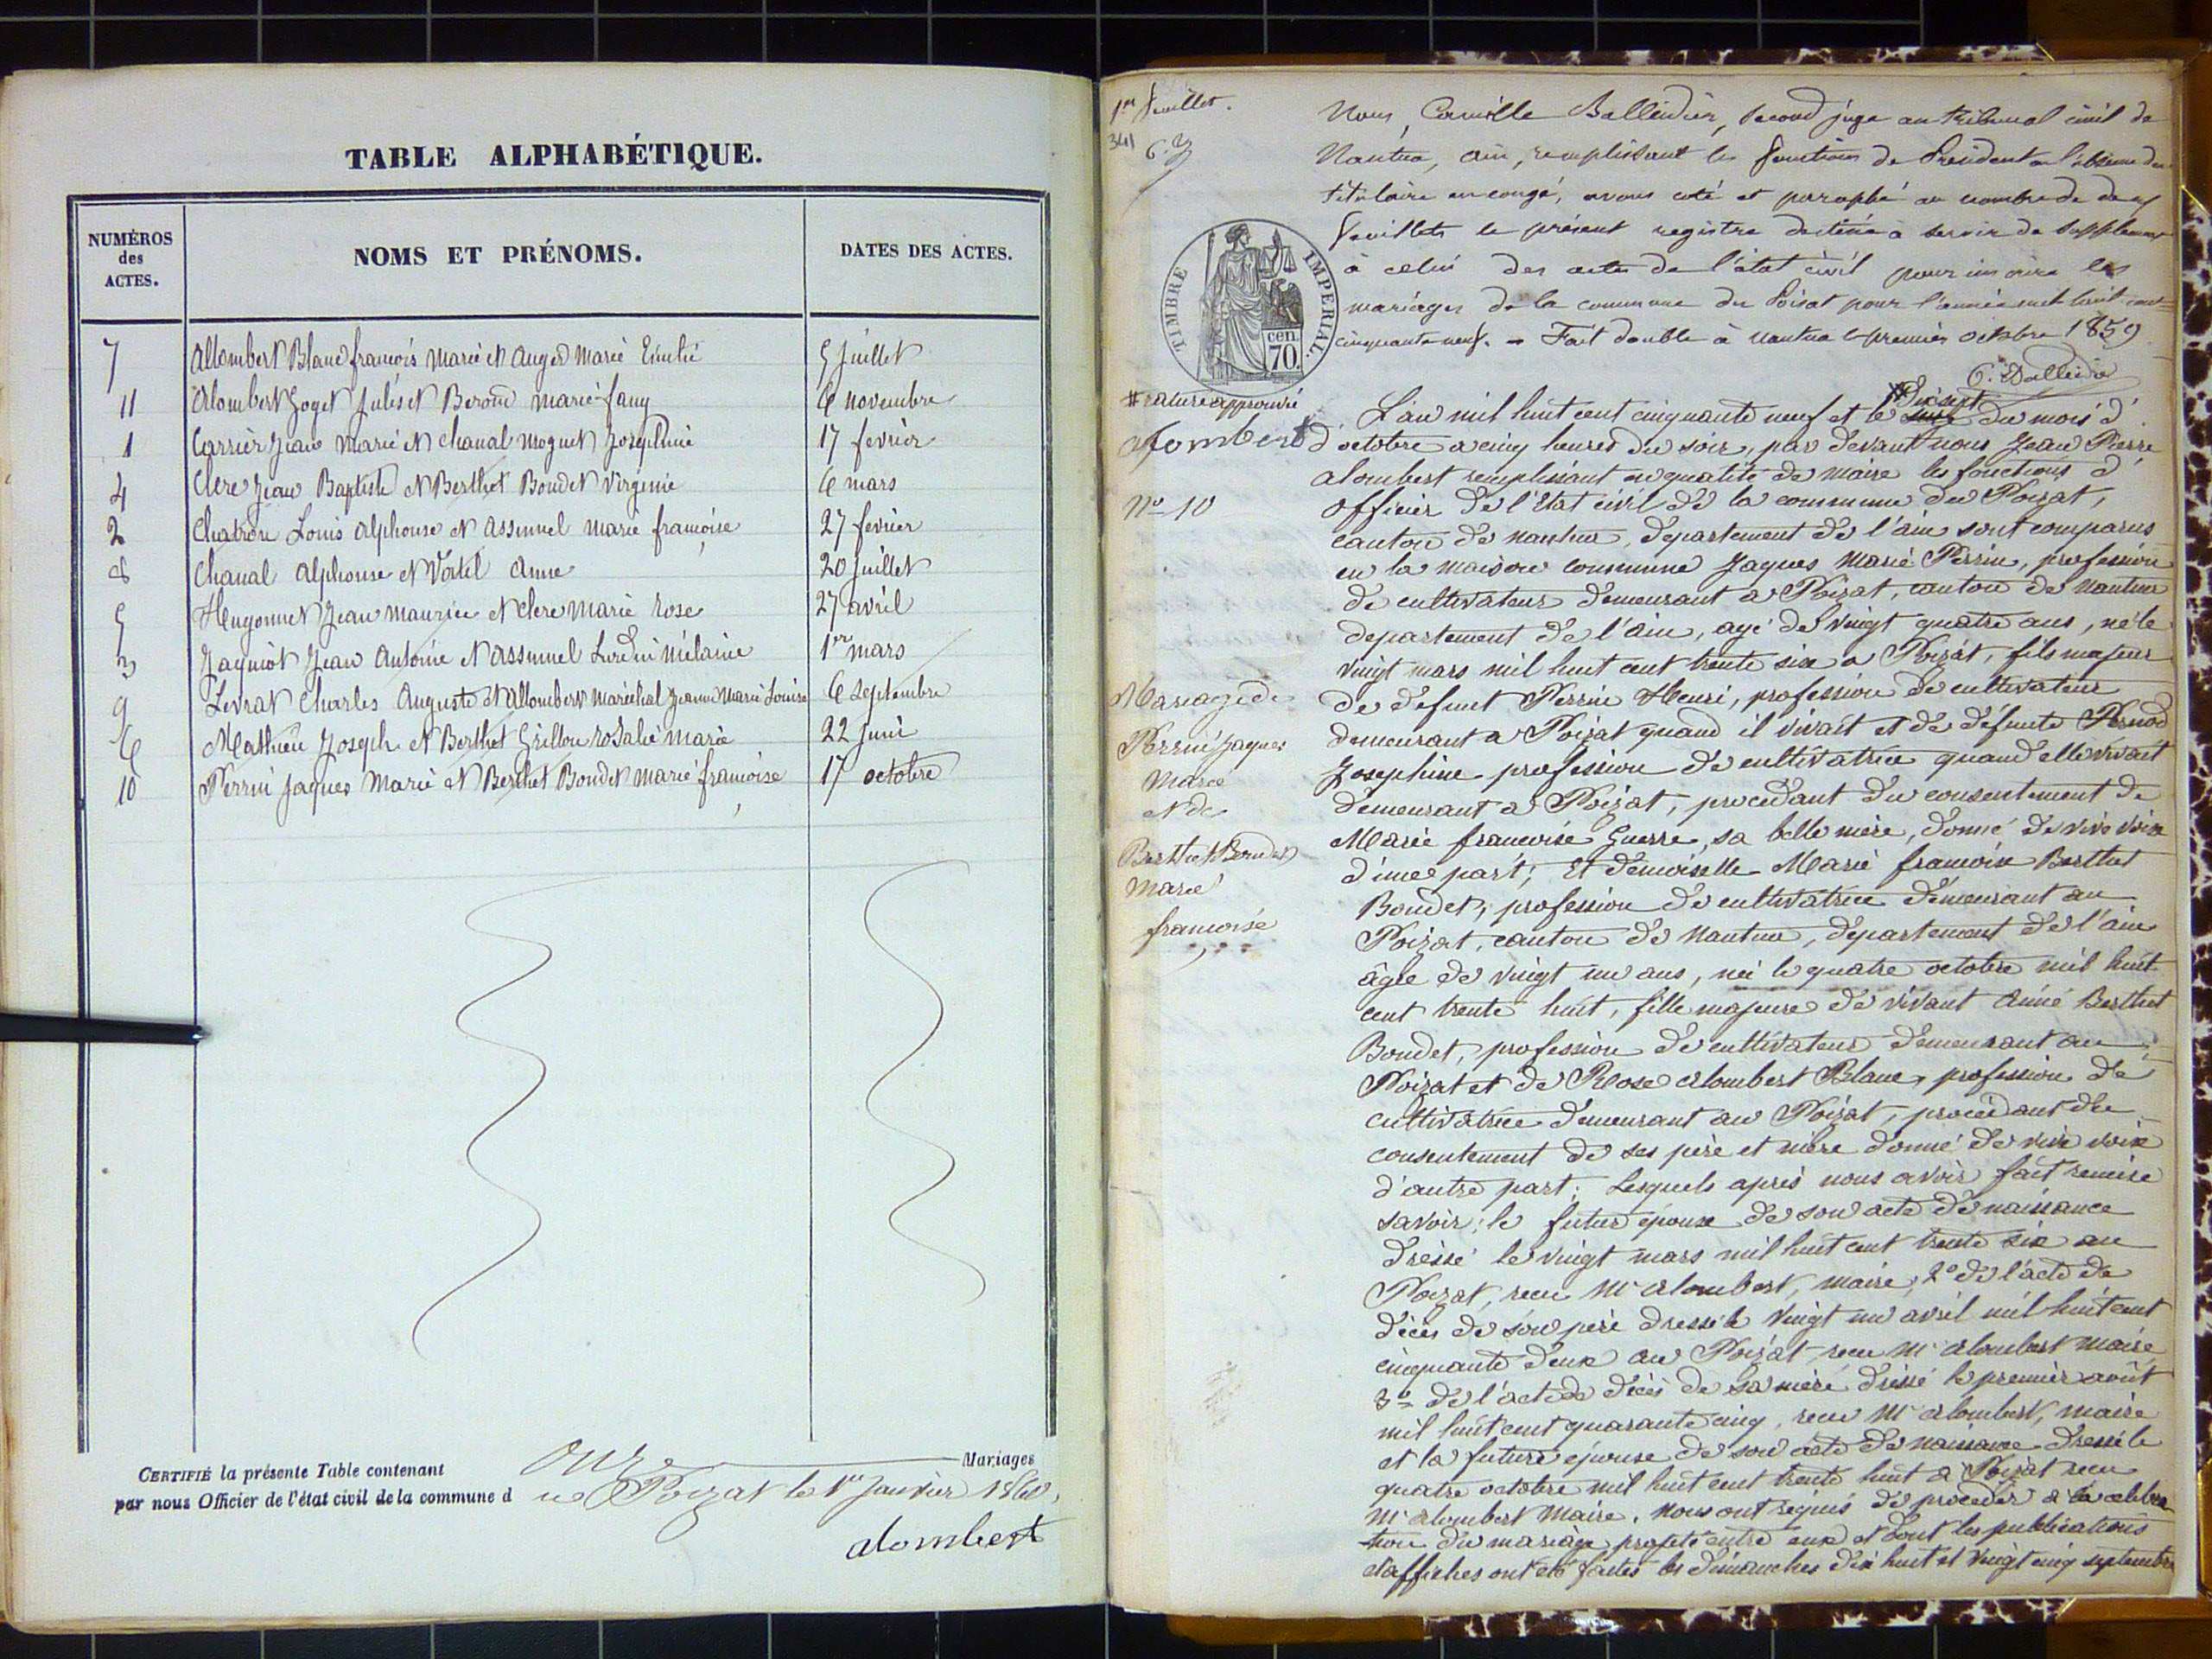 TABLE ALPHABÉTIQUE.
NUMÉROS des ACTES.
NOMS ET PRÉNOMS.
DATES DES ACTES.
7 Allombert Blanc francois Marie et Auger Marie Emilie 5 Juillet
11 Alombert Goget Jules et Beroud Marie fany 6 novembre
1 Carrier Jean Marie et Chanal Moguet Josephine 17 fevrier
4 Clerc Jean Baptiste et Berthet Boudet Virginie 6 mars
2 Chatron Louis Alphonse et Assumel Marie francoise 27 fevrier
8 Chanal Alphonse et Anne 20 Juillet
5 Hugonnet Jean Maurice et Clerc Marie Rose 27 avril
3 Jaquiot Jean Antoine et Assumel Lurdin mélanie 1er mars
9 Levrat Charles Auguste et Allombert Maréchal Jeanne Marie Louise 6 Septembre
6 Mathieu Joseph et Berthet Grillon Rosalie Marie 22 Juin
10 Perrin Jaques Marie et Berthet Boudet Marie francoise 17 octobre
CERTIFIÉ la présente Table contenant onze Mariages
par nous Officier de l'état civil de la commune d u Poizat le 1er Janvier 1860,
alombert
1er feuillet.
341
C. B
Nous, Camille Balleidier, second juge au tribunal civil de
Nantua, Ain, remplissant les fonctions de Président en l'absence du
titulaire en congé, avons coté et paraphé au nombre de deux
feuillets le présent registre destiné à servir de supplément
à celui des actes de l'état civil pour inscrire les
mariages de la commune du Poizat pour l'année mil huit cent
cinquante neuf. - Fait double à Nantua le premier octobre 1859
C. Balleidier
TIMBRE IMPERIAL.
cen. 70.
# rature approuvée
alombert
No 10
Mariage de
Perrin Jaques
Marie
et de
Berthet Boudet
Marie
francoise
# Dix sept
L'an mil huit cent cinquante neuf et le du mois d'
d'octobre a cinq heures du soir, par devant nous Jean Pierre
alombert remplissant en qualité de maire les fonctions d'
officier de l'Etat civil de la commune du Poizat,
canton de nantua, département de l'ain sont comparus
en la maison commune Jaques Marie Perrin, profession
de cultivateur demeurant a Poizat, canton de Nantua
département de l'ain, agé de vingt quatre ans, né le
vingt mars mil huit cent trente six a Poizat, fils majeur
de défunt Perrin Henri, profession de cultivateur
demeurant a Poizat quand il vivait et de défunte Pernod
Josephine profession de cultivatrice quand elle vivait
demeurant a Poizat, procédant du consentement de
Marie francoise Guerre, sa belle mère, donné de vive voix
d'une part; Et demoiselle Marie francoise Berthet
Boudet, profession de cultivatrice demeurant au
Poizat, canton de Nantua, département de l'ain
âgée de vingt un ans, née le quatre octobre mil huit
cent trente huit, fille majeure de vivant Aimé Berthet
Boudet, profession de cultivateur demeurant au
Poizat et de Rose alombert Blanc, profession de
cultivatrice demeurant au Poizat, procédant du
consentement de ses père et mère donné de vive voix
d'autre part; Lesquels après nous avoir fait remise
savoir; le futur époux de son acte de naissance
dressé le vingt mars mil huit cent trente six au
Poizat, recu Mr alombert, maire; 2º de l'acte de
décès de son père dressé le vingt un avril mil huit cent
cinquante deux au Poizat recu Mr alombert maire
3º de l'acte de décès de sa mère dressé le premier août
mil huit cent quarante cinq, recu Mr alombert, maire
et la future épouse de son acte de naissance dressé le
quatre octobre mil huit cent trente huit a Poizat recu
Mr alombert Maire. Nous ont requis de procéder a la célébra
tion du mariage projeté entre eux et dont les publications
et affiches ont été faites les dimanches dix huit et vingt cinq septembre